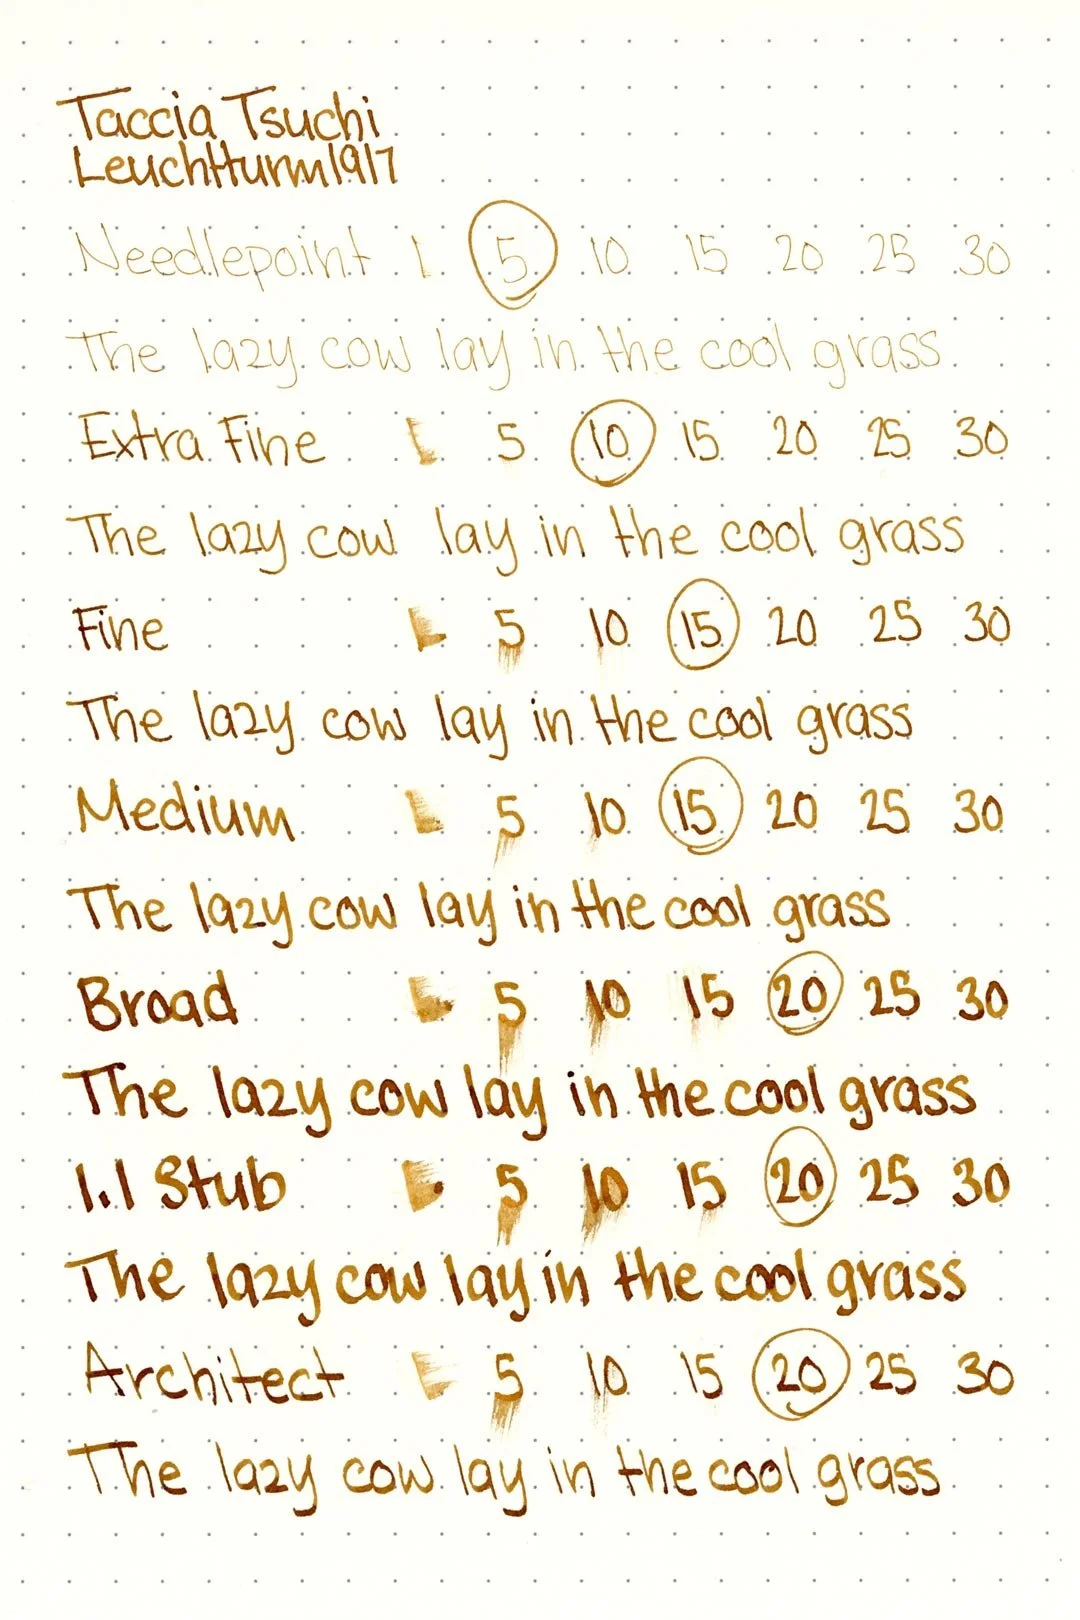 Taccia Tsuchi
Leuchtturm1917
Needlepoint 1 5 10 15 20 25 30
The lazy cow lay in the cool grass
Extra Fine 1 5 10 15 20 25 30
The lazy cow lay in the cool grass
Fine 1 5 10 15 20 25 30
The lazy cow lay in the cool grass
Medium 1 5 10 15 20 25 30
The lazy cow lay in the cool grass
Broad 1 5 10 15 20 25 30
The lazy cow lay in the cool grass
1.1 Stub 1 5 10 15 20 25 30
The lazy cow lay in the cool grass
Architect 1 5 10 15 20 25 30
The lazy cow lay in the cool grass